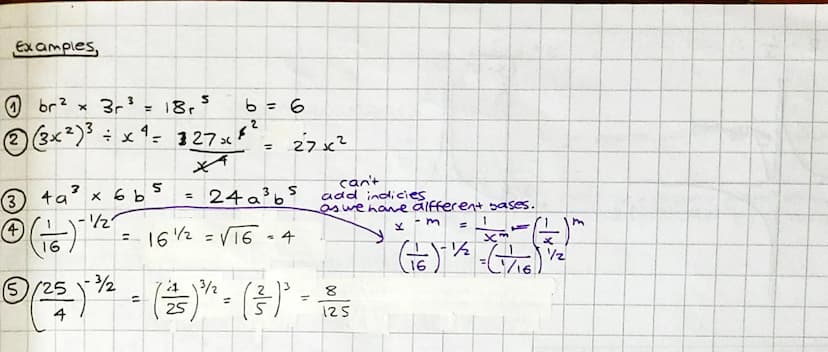 Examples,
① br² × 3r³ = 18r⁵ b = 6
② (3x²)³ ÷ x⁴ = 27x⁶² / x⁴ = 27x²
③ 4a³ × 6b⁵ = 24a³b⁵
can't
add indicies
as we have different bases.
④ (1/16)^-1/2 = 16^1/2 = √16 = 4
x^-m = 1/x^m = (1/x)^m
(1/16)^-1/2 = (1/1/16)^1/2
⑤ (25/4)^-3/2 = (4/25)^3/2 = (2/5)³ = 8/125